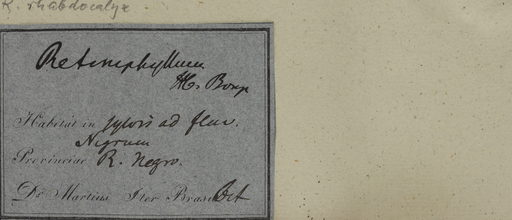 R. rhabdocalyx
Retiniphyllum
H. Bonp
Habitat in sylvis ad fluv.
Nigrum
Provinciae R. Negro.
Dr Martius Iter Brasil Oct